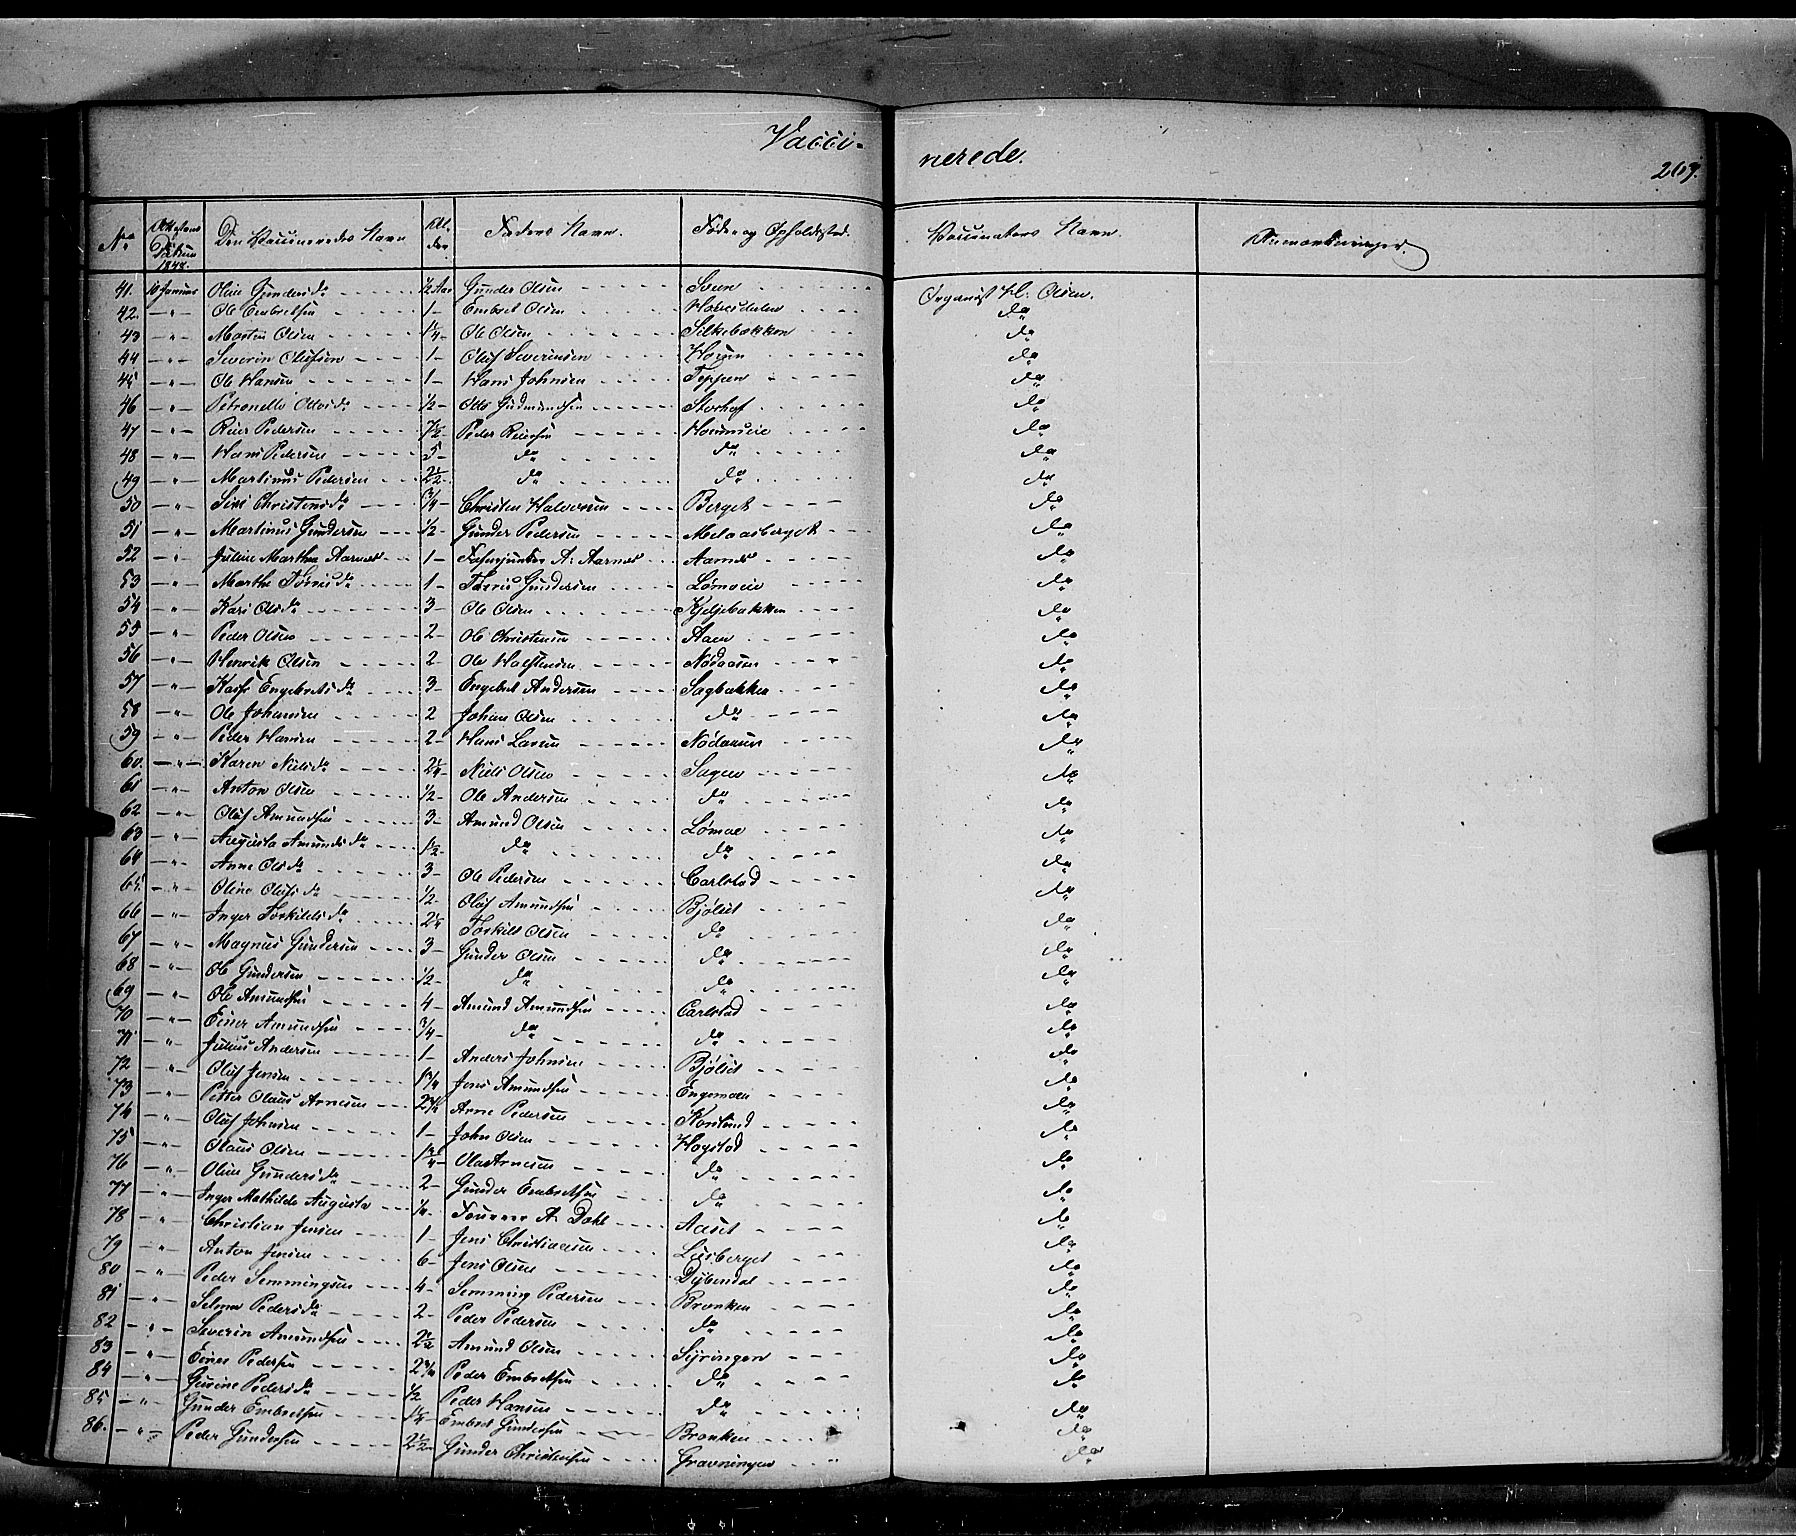 Vacci- nerede.
267.
No Attestens Datum 1844. Den Vaccineredes Navn Al- der Faders Navn. Føde og Opholdssted. Vaccinators Navn. Anmærkninger.
41. 10 Januar Oline Gundersdr ½ Aar Gunder Olsen Sveen Organist H: Olsen.
42. -"- Ole Embretsen 1- Embret Olsen do
43 -"- Morten Olsen 1¼- Ole Olsen Silkebakken do
44 -"- Severin Olufsen 1- Oluf Severinsen Hoeun do
45 -"- Ole Hansen 1- Hans Johnsen Teppen do
46 -"- Petronelle Ottosdr ½- Otto Gudmundsen Storhof do
47 -"- Reier Pedersen 7½- Peder Reiersen do
48 -"- Hans Pedersen 5- do do do
49 -"- Martinus Pedersen 2½- do do do
50 -"- Siri Christensdr ¾- Christen Halvorsen Berget do
51 -"- Martinus Gundersen ½- Gunder Pedersen Melaasberget do
52 -"- Juline Marthea Aarnes 1- Fahnejunker A: Aarnes Aarnes do
53 -"- Marthe Tørrisdr 1- Tørris Gundersen Lømoeie do
54 -"- Kari Olsdr 3- Ole Olsen Kjeljebakken do
55 -"- Peder Olsen 2- Ole Christensen Aaen do
56 -"- Henrik Olsen 2- Ole Halstensen Nödaasen do
57 -"- Kari Engebretsdr 3- Engebret Andersen Sagbakken do
58 -"- Ole Johansen 2 Johan Olsen do do
59 -"- Peder Hansen 2- Hans Larsen Nödaasen do
60. -"- Karen Nielsdr 2¼- Niels Olsen Sagen do
61 -"- Anton Olsen ½- Ole Andersen do do
62 -"- Oluf Amundsen 3- Amund Olsen Lømoe do
63 -"- Augusta Amundsdr 1½- do do do
64 -"- Anne Olsdr 3- Ole Pedersen Carlstad do
65 -"- Oline Olufsdr ½- Oluf Amundsen Bjølset do
66 -"- Inger Torkildsdr 2¼- Torkild Olsen do do
67 -"- Magnus Gundersen 3- Gunder Olsen do do
68 -"- Ole Gundersen ½- do do do
69 -"- Ole Amundsen 4- Amund Amundsen Carlstad do
70 -"- Einer Amundsen ¾- do do do
71 -"- Julius Andersen 1- Anders Johnsen Bjølset do
72 -"- Oluf Jensen 1¾- Jens Amundsen Engemoen do
73 -"- Petter Olaus Arnesen 2¾- Arne Pedersen do
74 -"- Oluf Johnsen 1- John Olsen Hogstad do
75 -"- Olaus Olsen 1¾- Ola Arnesen do do
76 -"- Oline Gundersdr 2- Gunder Embretsen do do
77 -"- Inger Mathilde Augusta ¼- A: Dahl Aaset do
78 -"- Christian Jensen 1- Jens Christiansen Liusberget do
79 -"- Anton Jensen 6- Jens Olsen Dybendal do
80 -"- Peder Semmingsen 4- Semming Pedersen Bronken do
81 -"- Selma Pedersdr 2- Peder Pedersen do do
82 -"- Severin Amundsen 2½ Amund Olsen Syringen do
83 -"- Einer Pedersen 2¾ Peder Embretsen do do
84 -"- Gusine Pedersdr ½ Peder Hansen do do
85 -"- Gunder Embretsen 1¼- Embret Gundersen Bronken do
86. -"- Peder Gundersen 2½- Gunder Christensen Gravningen do